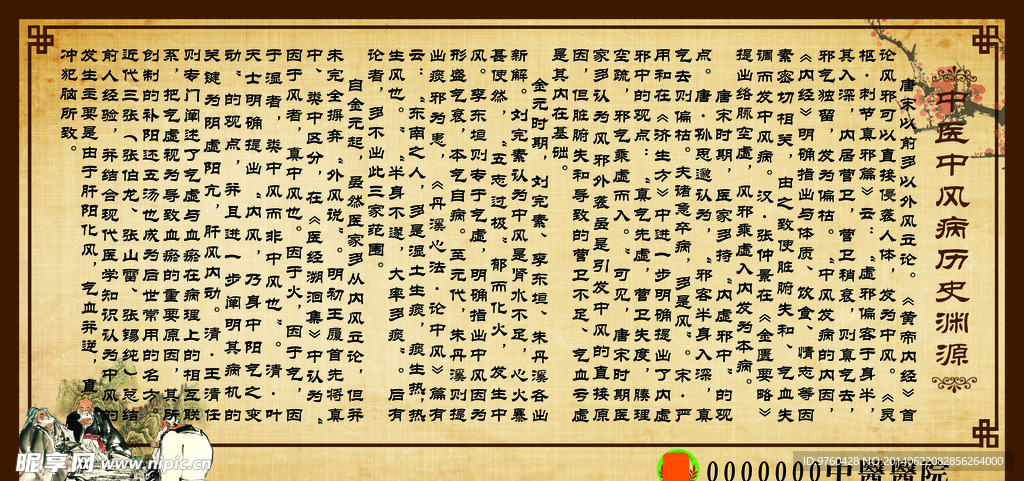 中医中风病历史渊源
唐宋以前多以外风立论。《黄帝内经》首
论风邪可以直接侵袭人体，发为中风。《灵
枢·刺节真邪篇》云：“虚邪偏客于身半，
其入深，内居营卫，营卫稍衰，则真气去，
邪气独留，发为偏枯。”中风发病的内因，
《内经》明确指出与体质、饮食、情志等因
素密切相关，由之致使脏腑失和、气血失
调而发中风病。汉·张仲景在《金匮要略》
提出络脉空虚，风邪乘虚入内发为本病。
唐宋时期，医家多持“内虚邪中”的观
点。唐·孙思邈认为，“邪客半身入深，真
气去则偏枯。夫诸急卒病，多是风”。宋·严
用和在《济生方》中进一步明确提出了内虚
邪中的观点：“真气先虚，营卫失度，腠理
空疏，邪气乘虚而入。”可见，唐宋时期医
家多认为风邪外袭虽是引发中风的直接原
因，但脏腑失和导致的营卫不足、气血亏虚
是其内在基础。
金元时期，刘完素、李东垣、朱丹溪各出
新解。刘完素认为中风是肾水不足，心火暴
甚使然，“五志过极”郁而化火，发生中
风。李东垣则专于气虚，明确指出中风因为
形盛气衰，本气自病。至元代，朱丹溪则提
出痰邪为患，《丹溪心法·论中风》篇有
云：“东南之人，多是湿土生痰，痰生热，热
生风也。”“半身不遂，大率多痰”。后有
论者，多不出此三家范围。
自金元起，虽然医家多从内风立论，但并
未完全摒弃“外风说”。明初王履首先将真
中、类中区分，在《医经溯洄集》中认为“
因于风者，真中风也。因于火，因于气，因
于湿者，类中风而非中风也。”清·叶
天士明确提出“内风，乃身中阳气之变
动”的观点，并且进一步阐明其病机的
关键为阴虚阳亢，肝风内动。清·王清任
则专门阐述了气虚与血瘀在病理上的相互联
系，把气虚视为导致血瘀的重要原因，其所
创制的补阳还五汤也成为后世常用的名方。
近代三张（张伯龙、张山雷、张锡纯）总结
前人经验，并结合现代医学知识认为中风的
发生主要是由于肝阳化风，气血并逆，直
冲犯脑所致。
0000000中醫醫院
昵享网 www.nipic.cn
ID:9760428 NO:20140622082856264000